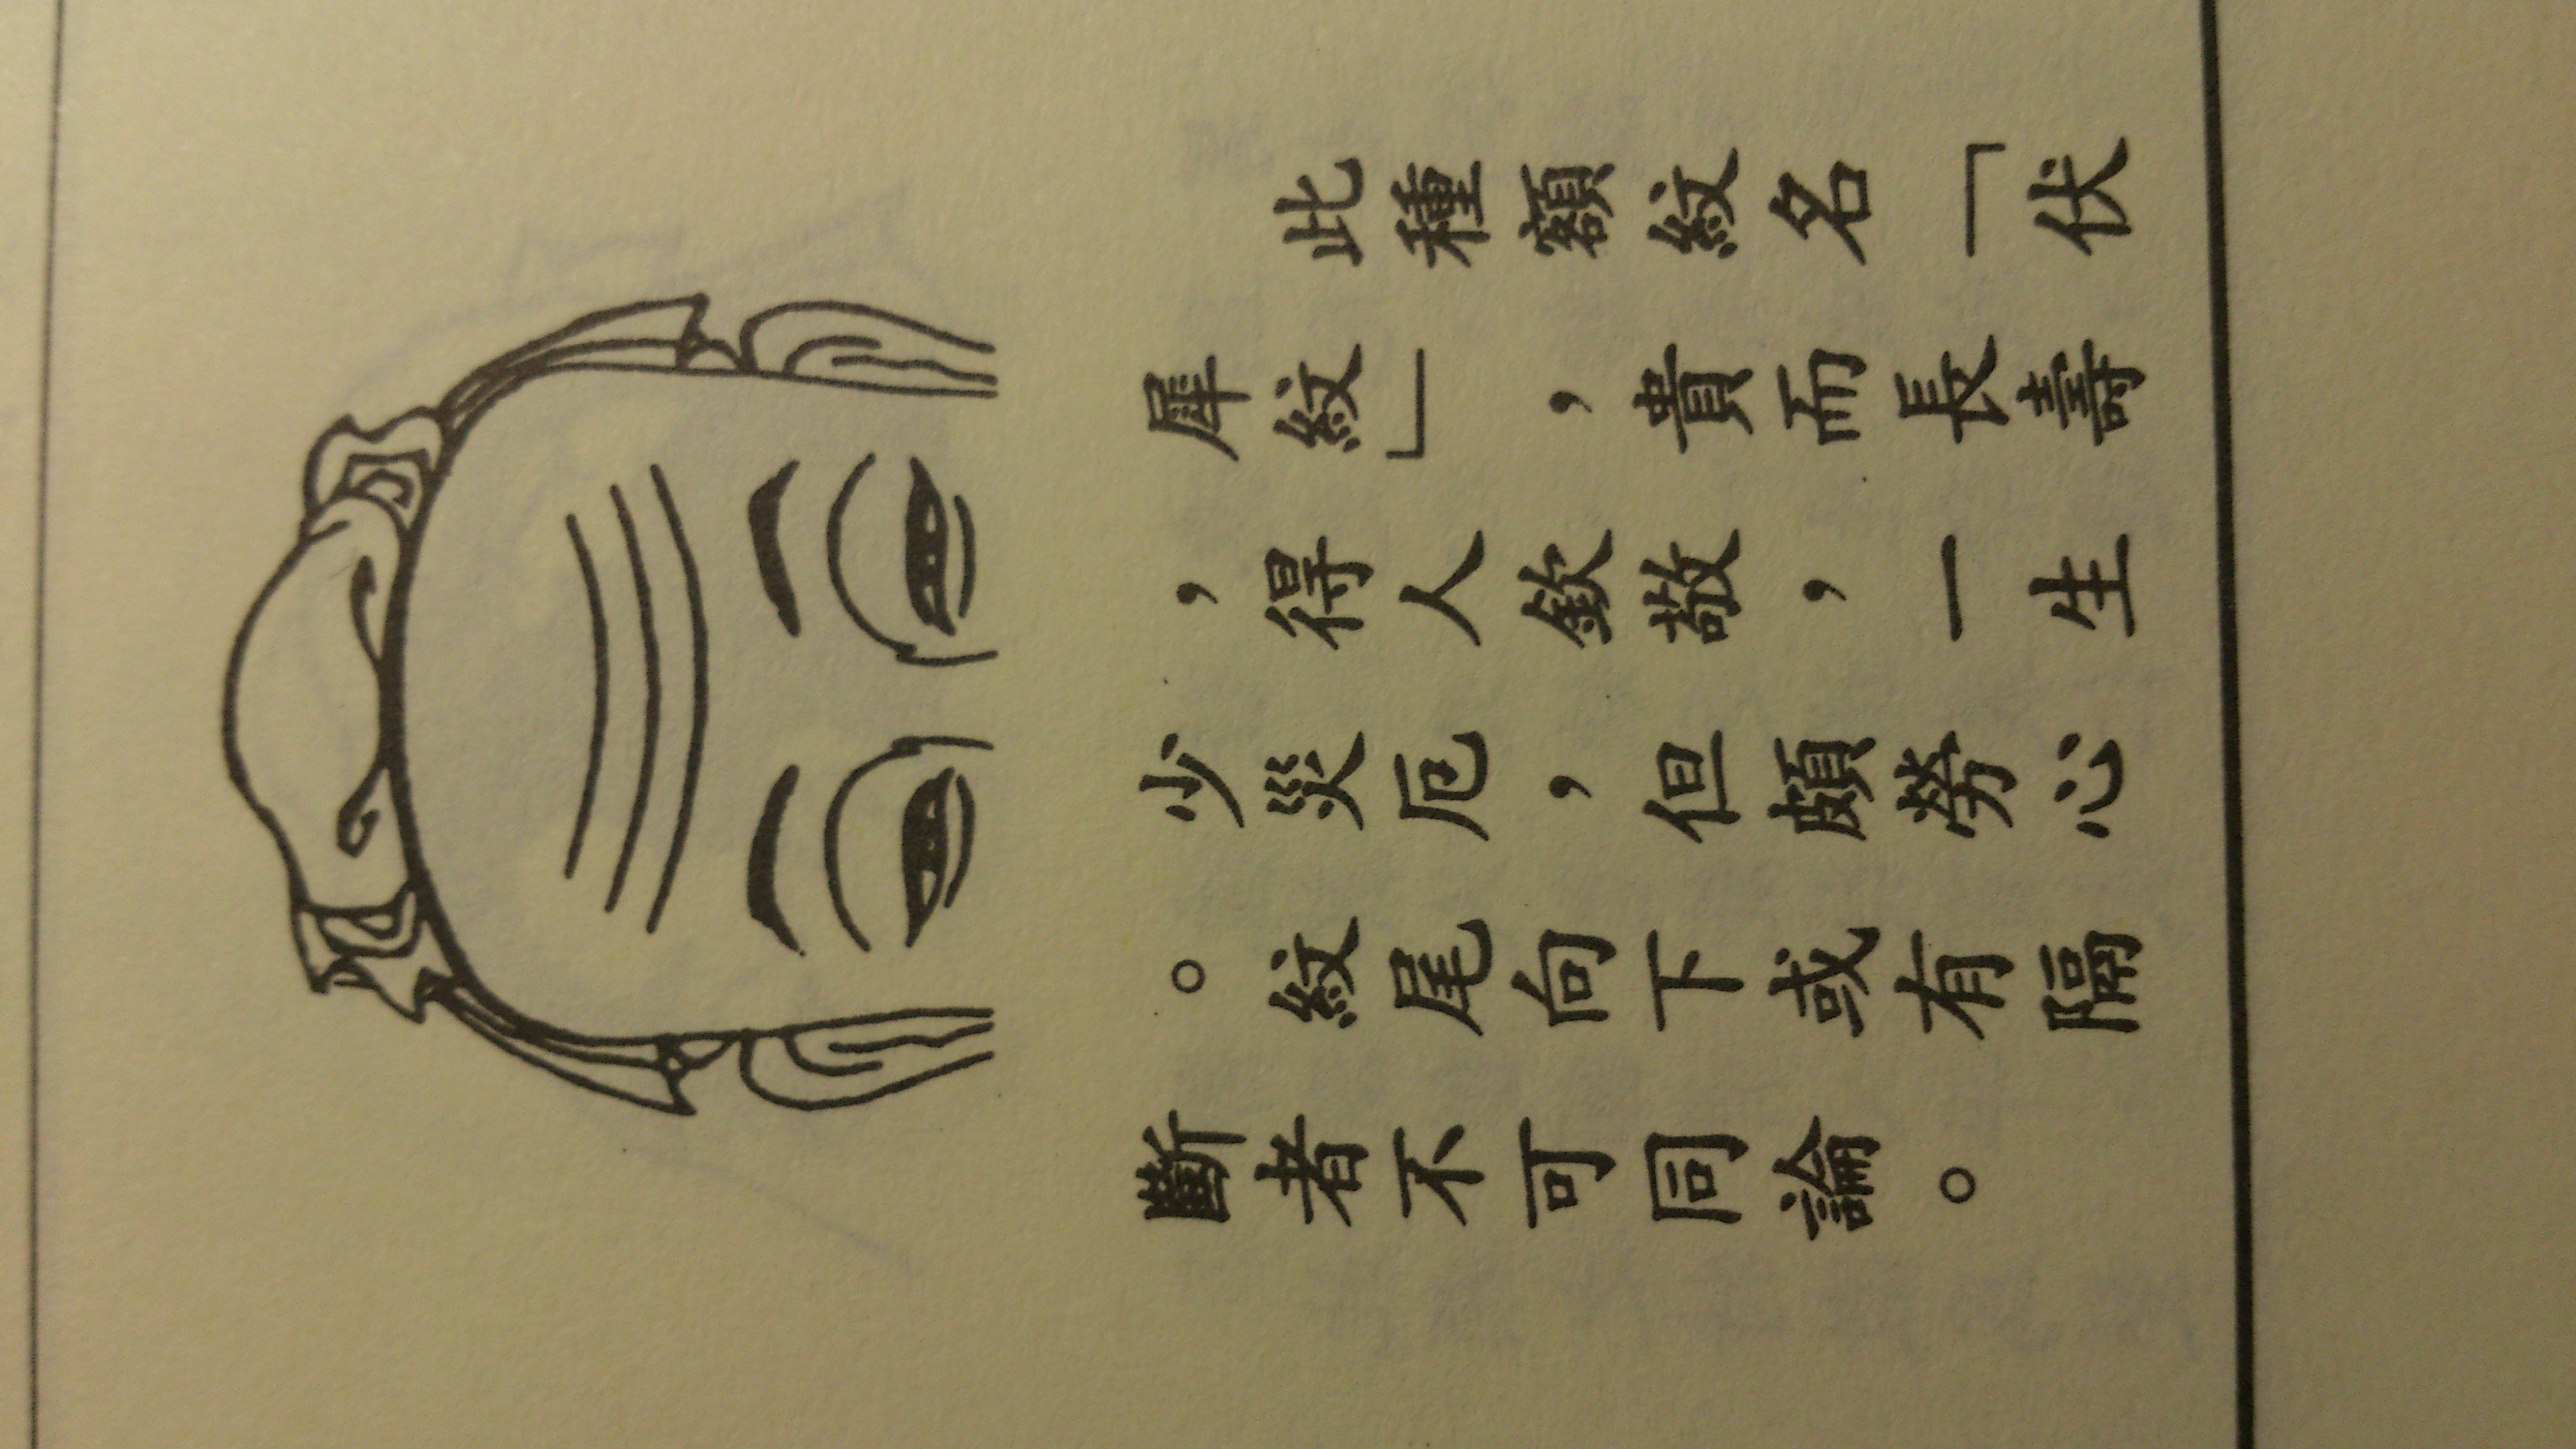 此種額紋名「伏
犀紋」，貴而長壽
，得人欽敬，一生
少災厄，但頗勞心
。紋尾向下或有隔
斷者不可同論。